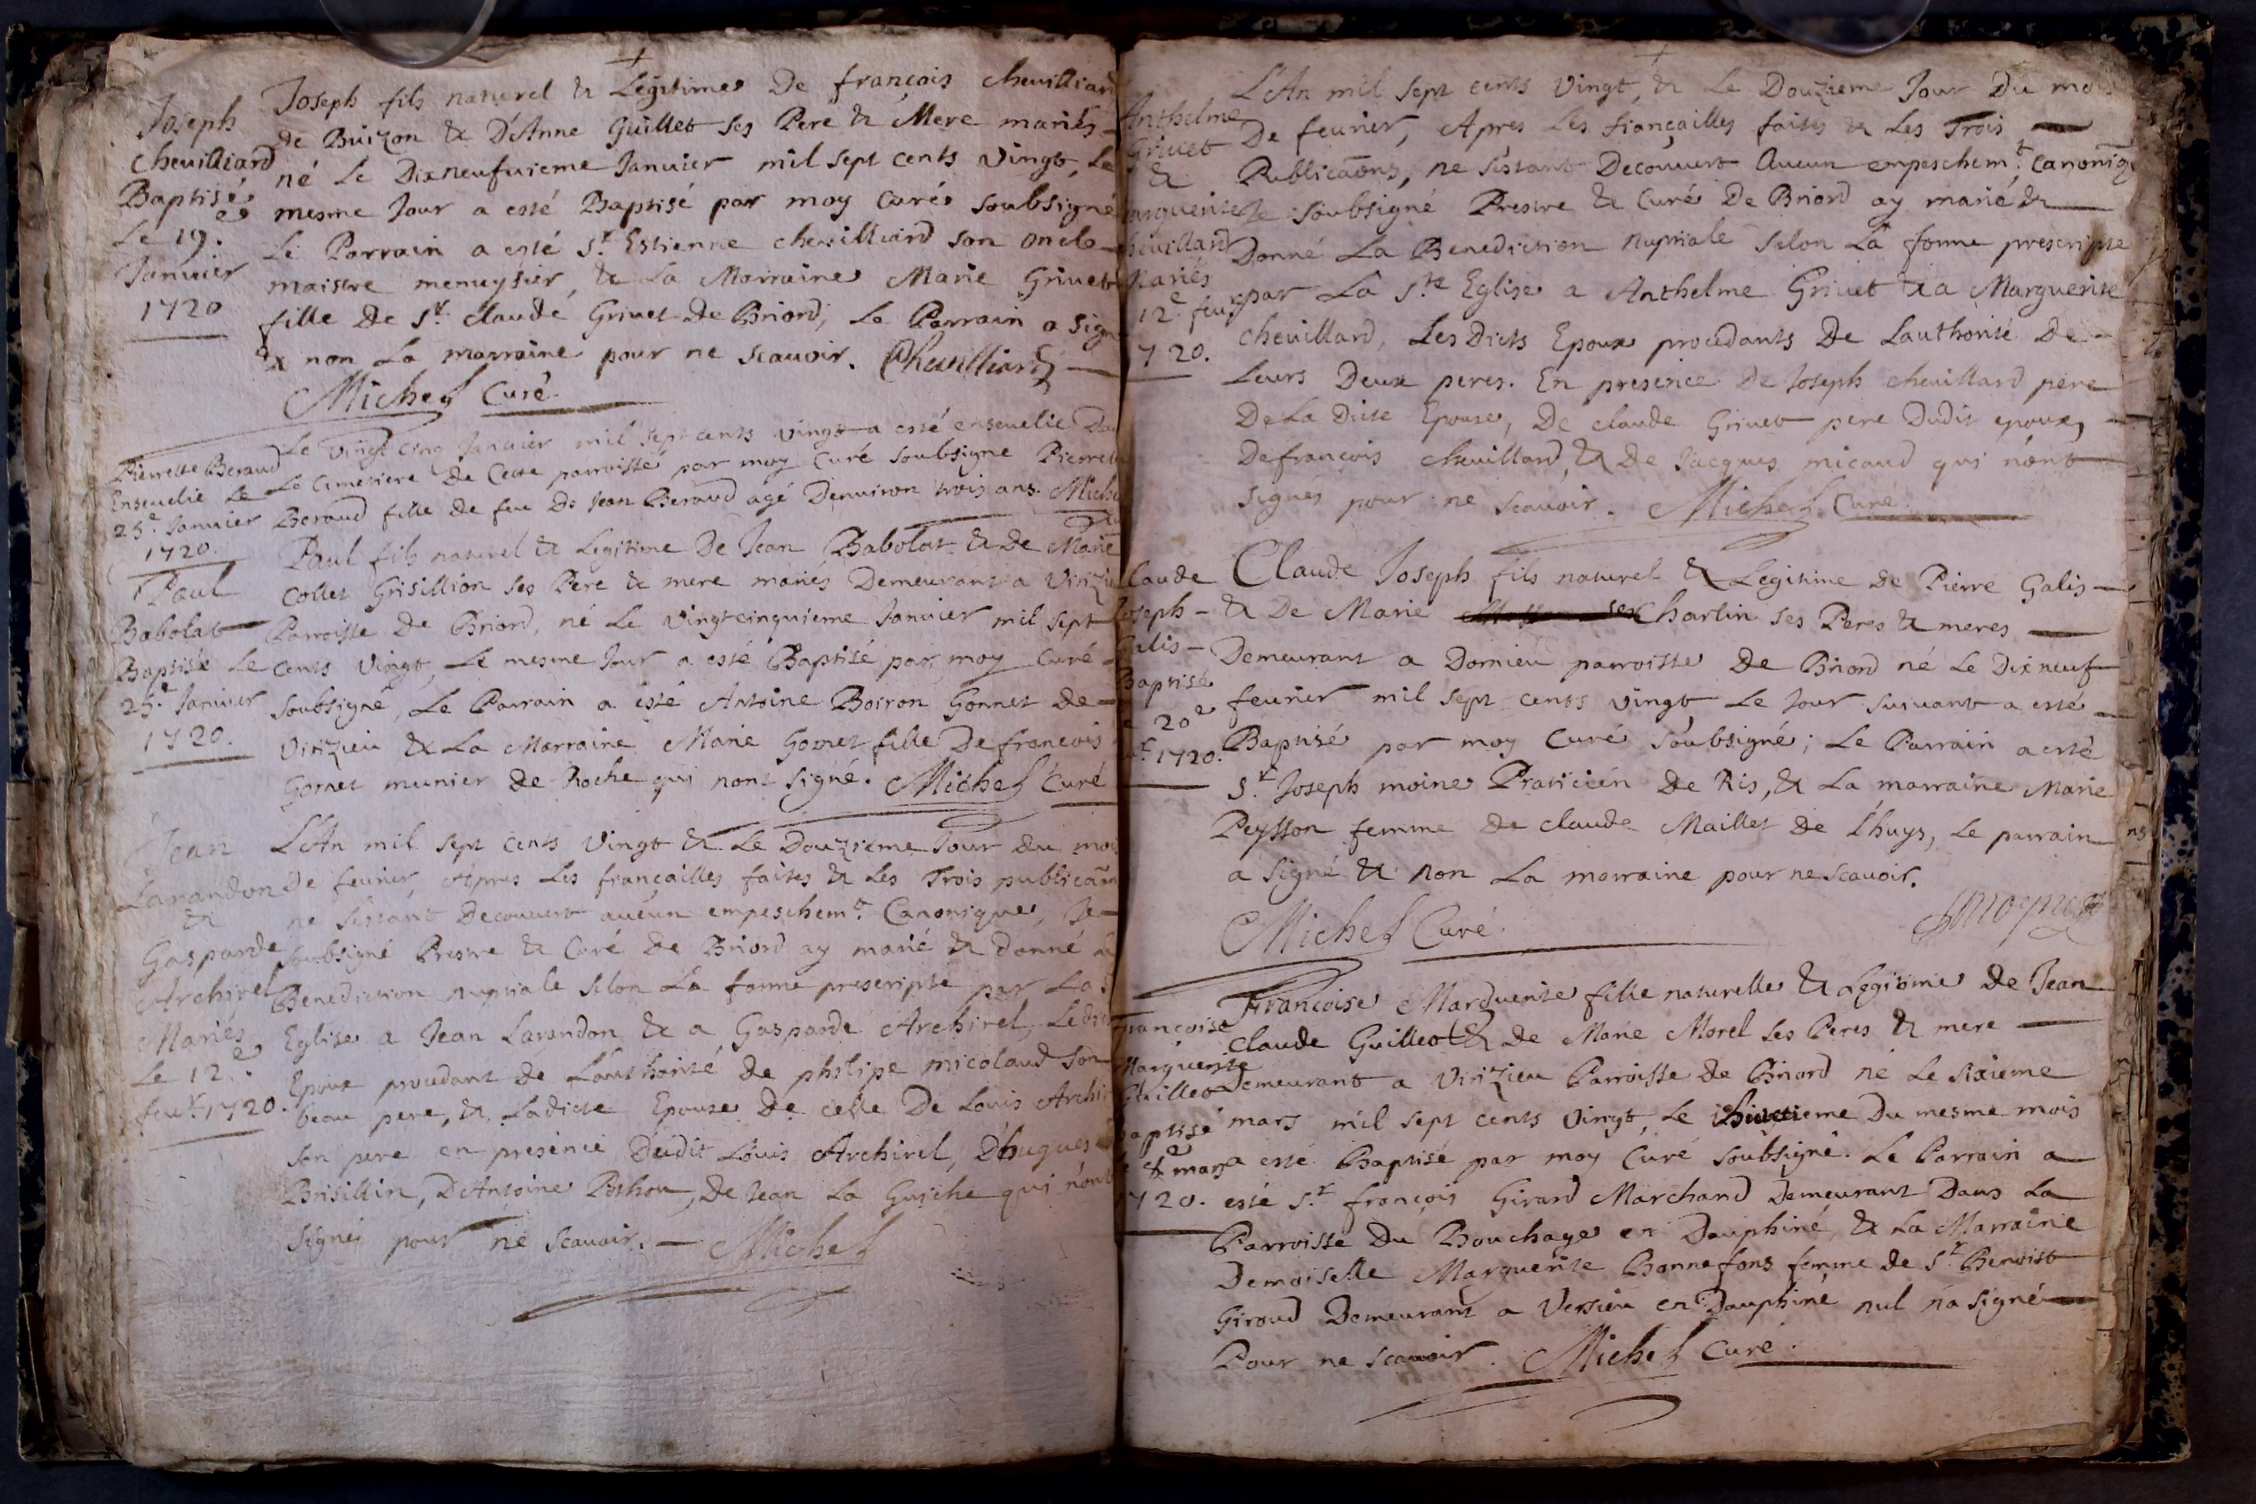 Joseph
Chevilliard
Baptisé
Le 19.e
Janvier
1720
Joseph fils naturel & Legitime De françois chevilliard
de Buizon & D'Anne Guillet ses Pere & Mere mariés
né Le Dixneufvieme Janvier mil sept cents vingt, Le
mesme Jour a esté Baptisé par moy Curé soubsigné
Le Parrain a esté Sr. Estienne chevilliard son oncle
maistre menuysier, & La Marraine Marie Grivet
fille De Sr. claude Grivet de Briord, Le Parrain a signé
& non La marraine pour ne scavoir. Chevilliard
Michel Curé.
Pierrette Beraud
Ensevelie Le
25.e Janvier
1720.
Le vingt cinq Janvier mil sept cents vingt a esté ensevelie Dans
Le Cimetiere de Cette parroisse par moy Curé soubsigne Pierrette
Beraud fille de feu De Jean Beraud agé Denviron trois ans. Michel
Paul
Babolat
Baptisé Le
25.e Janvier
1720.
Paul fils naturel & Legitime De Jean Babolat & de Marie
Collet Grisillion ses Pere & mere mariés Demeurant a Virizieu
Parroisse de Briord, né Le vingtcinquieme Janvier mil sept
cents vingt, Le mesme Jour a esté Baptisé par moy Curé
soubsigné, Le Parrain a esté Antoine Boiron Gonnet de
Virizieu & La Marraine Marie Gonet fille De francois
Gonet munier de Roche qui nont signé. Michel Curé
Jean
Larandon
&
Gasparde
Archirel
Mariés
Le 12.e
fevr. 1720.
L'An mil sept cents vingt & Le Douzieme Jour du mois
De fevrier, Apres Les fiançailles faites & Les Trois publicaons
ne s'estant Decouvert aucun empeschemt. Canonique, Je
soubsigné Prestre & Curé De Briord ay marié & donné la
Benediction nuptiale selon La forme prescripte par La Ste
Eglise a Jean Larandon & a Gasparde Archirel, Ledict
Epoux procedant de Lauthorité de philipe micolaud son
beau pere, & Ladicte Epouse De celle De Louis Archirel
son pere en presence Dudit Louis Archirel, D'hugues
Brisillin, D'Antoine Pochon, de Jean La Guiche qui n'ont
signés pour ne scavoir. Michel
Anthelme
Grivet
&
Marguerite
chevillard
Mariés
12.e fevr
1720.
L'An mil sept cents vingt, & Le Douzieme Jour Du mois
De fevrier, Apres Les fiançailles faites & Les Trois
Publicaons, ne s'estant Decouvert Aucun empeschemt. canoniq
Je soubsigné Prestre & Curé De Briord ay marié &
Donné La Benediction Nuptiale selon La forme prescripte
par La Ste Eglise a Anthelme Grivet & a Marguerite
chevillard, Les Dicts Epoux procedants De Lauthorité De
Leurs Deux peres. En presence De Joseph chevillard pere
De La Dite Epouse, De claude Grivet pere Dudit epoux,
De francois chevillard, & De Jacques micaud qui n'ont
signés pour ne scavoir. Michel Curé.
Claude
Joseph
Galis
Baptisé
Le 20.e
fr. 1720.
Claude Joseph fils naturel & Legitime de Pierre Galis
& De Marie Charlin ses Peres & meres
Demeurant a Dornieu parroisse De Briord né Le Dixneuf
fevrier mil sept cents vingt Le Jour suivant a esté
Baptisé par moy Curé soubsigné; Le Parrain a esté
Sr. Joseph moine Praticien De Ris, & La marraine Marie
Peysson femme de claude Maillet de L'huys, Le parrain
a signé & non La marraine pour ne scavoir.
Michel Curé.
Françoise
Marguerite
Guillet
Baptisé
Le 8.e mars
1720.
Francoise Marguerite fille naturelle & Legitime de Jean
claude Guillet & de Marie Morel ses Peres & mere
Demeurant a Virizieu Parroisse de Briord né Le sixieme
mars mil sept cents vingt, Le huictieme Du mesme mois
a esté Baptisé par moy Curé soubsigné. Le Parrain a
esté Sr. françois Girard Marchand Demeurant Dans La
Parroisse Du Bouchage en Dauphiné & La Marraine
Demoiselle Marguerite Bonnefons femme de Sr. Benoist
Giroud Demeurant a Versieu en Dauphiné nul n'a signé
Pour ne scavoir. Michel Curé.